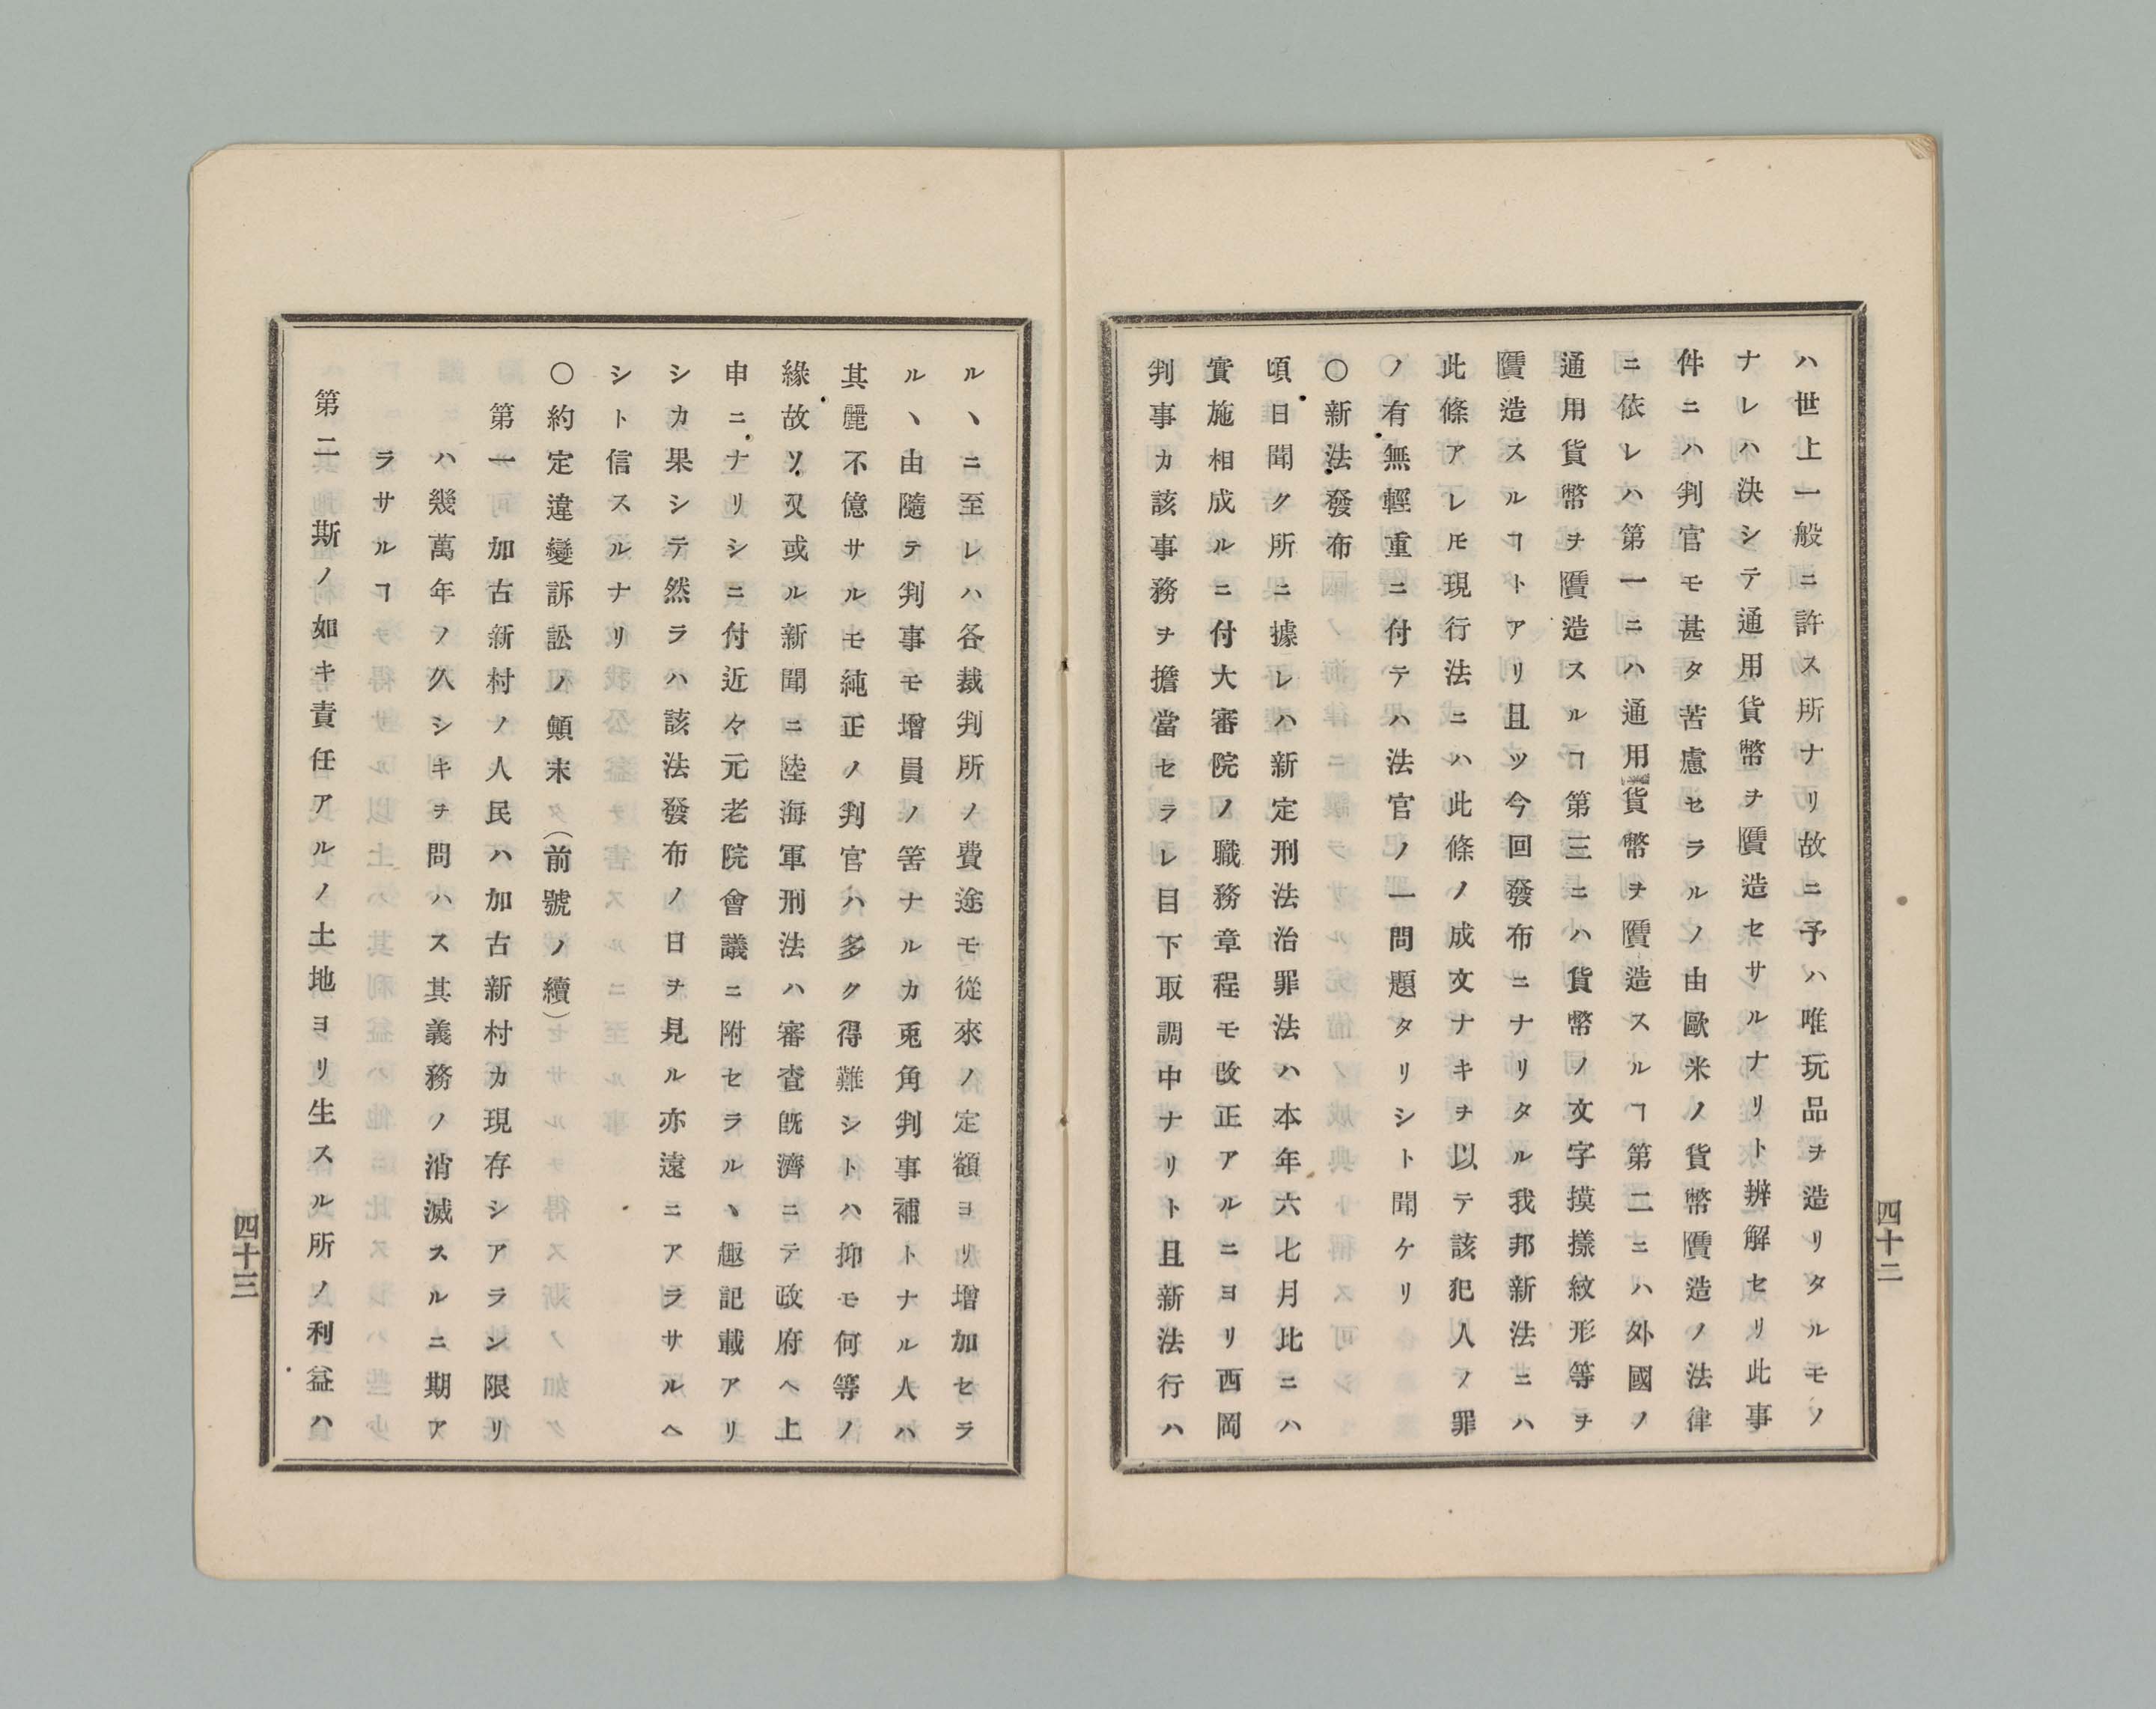 ハ世上一般ニ許ス所ナリ故ニ予ハ唯玩品ヲ造リタルモノ
ナレハ決シテ通用貨幣ヲ贋造セサルナリト辨解セリ此事
件ニハ判官モ甚タ苦慮セラルノ由歐米ノ貨幣贋造ノ法律
ニ依レハ第一ニハ通用貨幣ヲ贋造スルヿ第二ニハ外國ノ
通用貨幣ヲ贋造スルヿ第三ニハ貨幣ノ文字摸樣紋形等ヲ
贋造スルヿトアリ且ツ今回發布ニナリタル我邦新法ニハ
此條アレ𪜈現行法ニハ此條ノ成文ナキヲ以テ該犯人ノ罪
ノ有無輕重ニ付テハ法官ノ一問題タリシト聞ケリ
〇新法發布
頃日聞ク所ニ據レハ新定刑法治罪法ハ本年六七月比ニハ
實施相成ルニ付大審院ノ職務章程モ改正アルニヨリ西岡
判事カ該事務ヲ擔當セラレ目下取調中ナリト且新法行ハ
四十二
ルヽニ至レハ各裁判所ノ費途モ從來ノ定額ヨリ增加セラ
ルヽ由隨テ判事モ增員ノ筈ナルカ兎角判事補トナル人ハ
其麗不億サルモ純正ノ判官ハ多ク得難シトハ抑モ何等ノ
緣故ソ又或ル新聞ニ陸海軍刑法ハ審査既濟ニテ政府ヘ上
申ニナリシニ付近々元老院會議ニ附セラルヽ趣記載アリ
シカ果シテ然ラハ該法發布ノ日ヲ見ル亦遠ニアラサルヘ
シト信スルナリ
〇約定違變訴訟ノ顚末(前號ノ續)
第一 加古新村ノ人民ハ加古新村カ現存シアラン限リ
ハ幾萬年ノ久シキヲ問ハス其義務ノ消滅スルニ期ア
ラサルヿ
第二 斯ノ如キ責任アルノ土地ヨリ生スル所ノ利益ハ
四十三